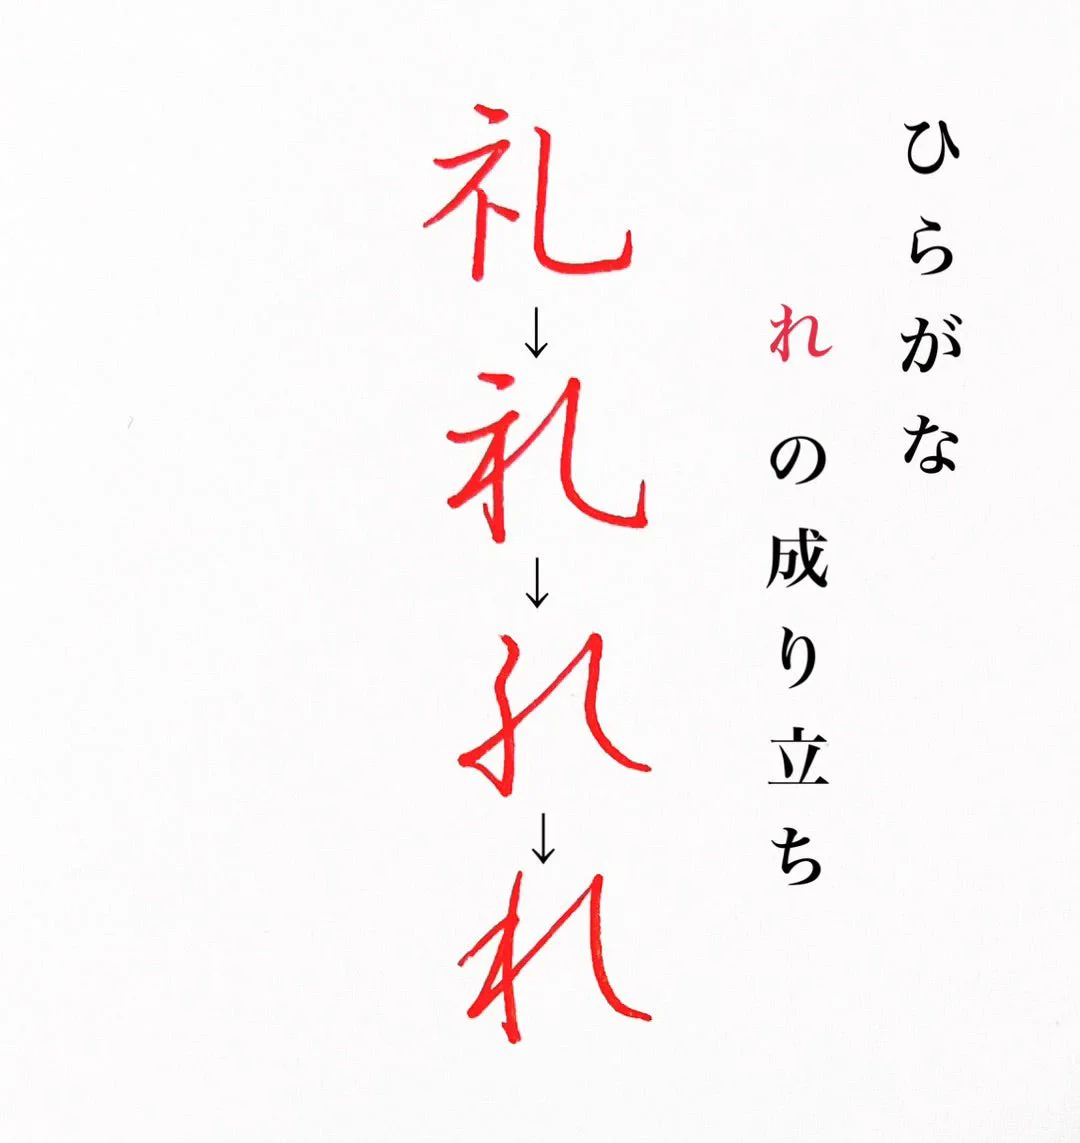 ひらがな
れの成り立ち
礼
↓
礼
↓
れ
↓
れ